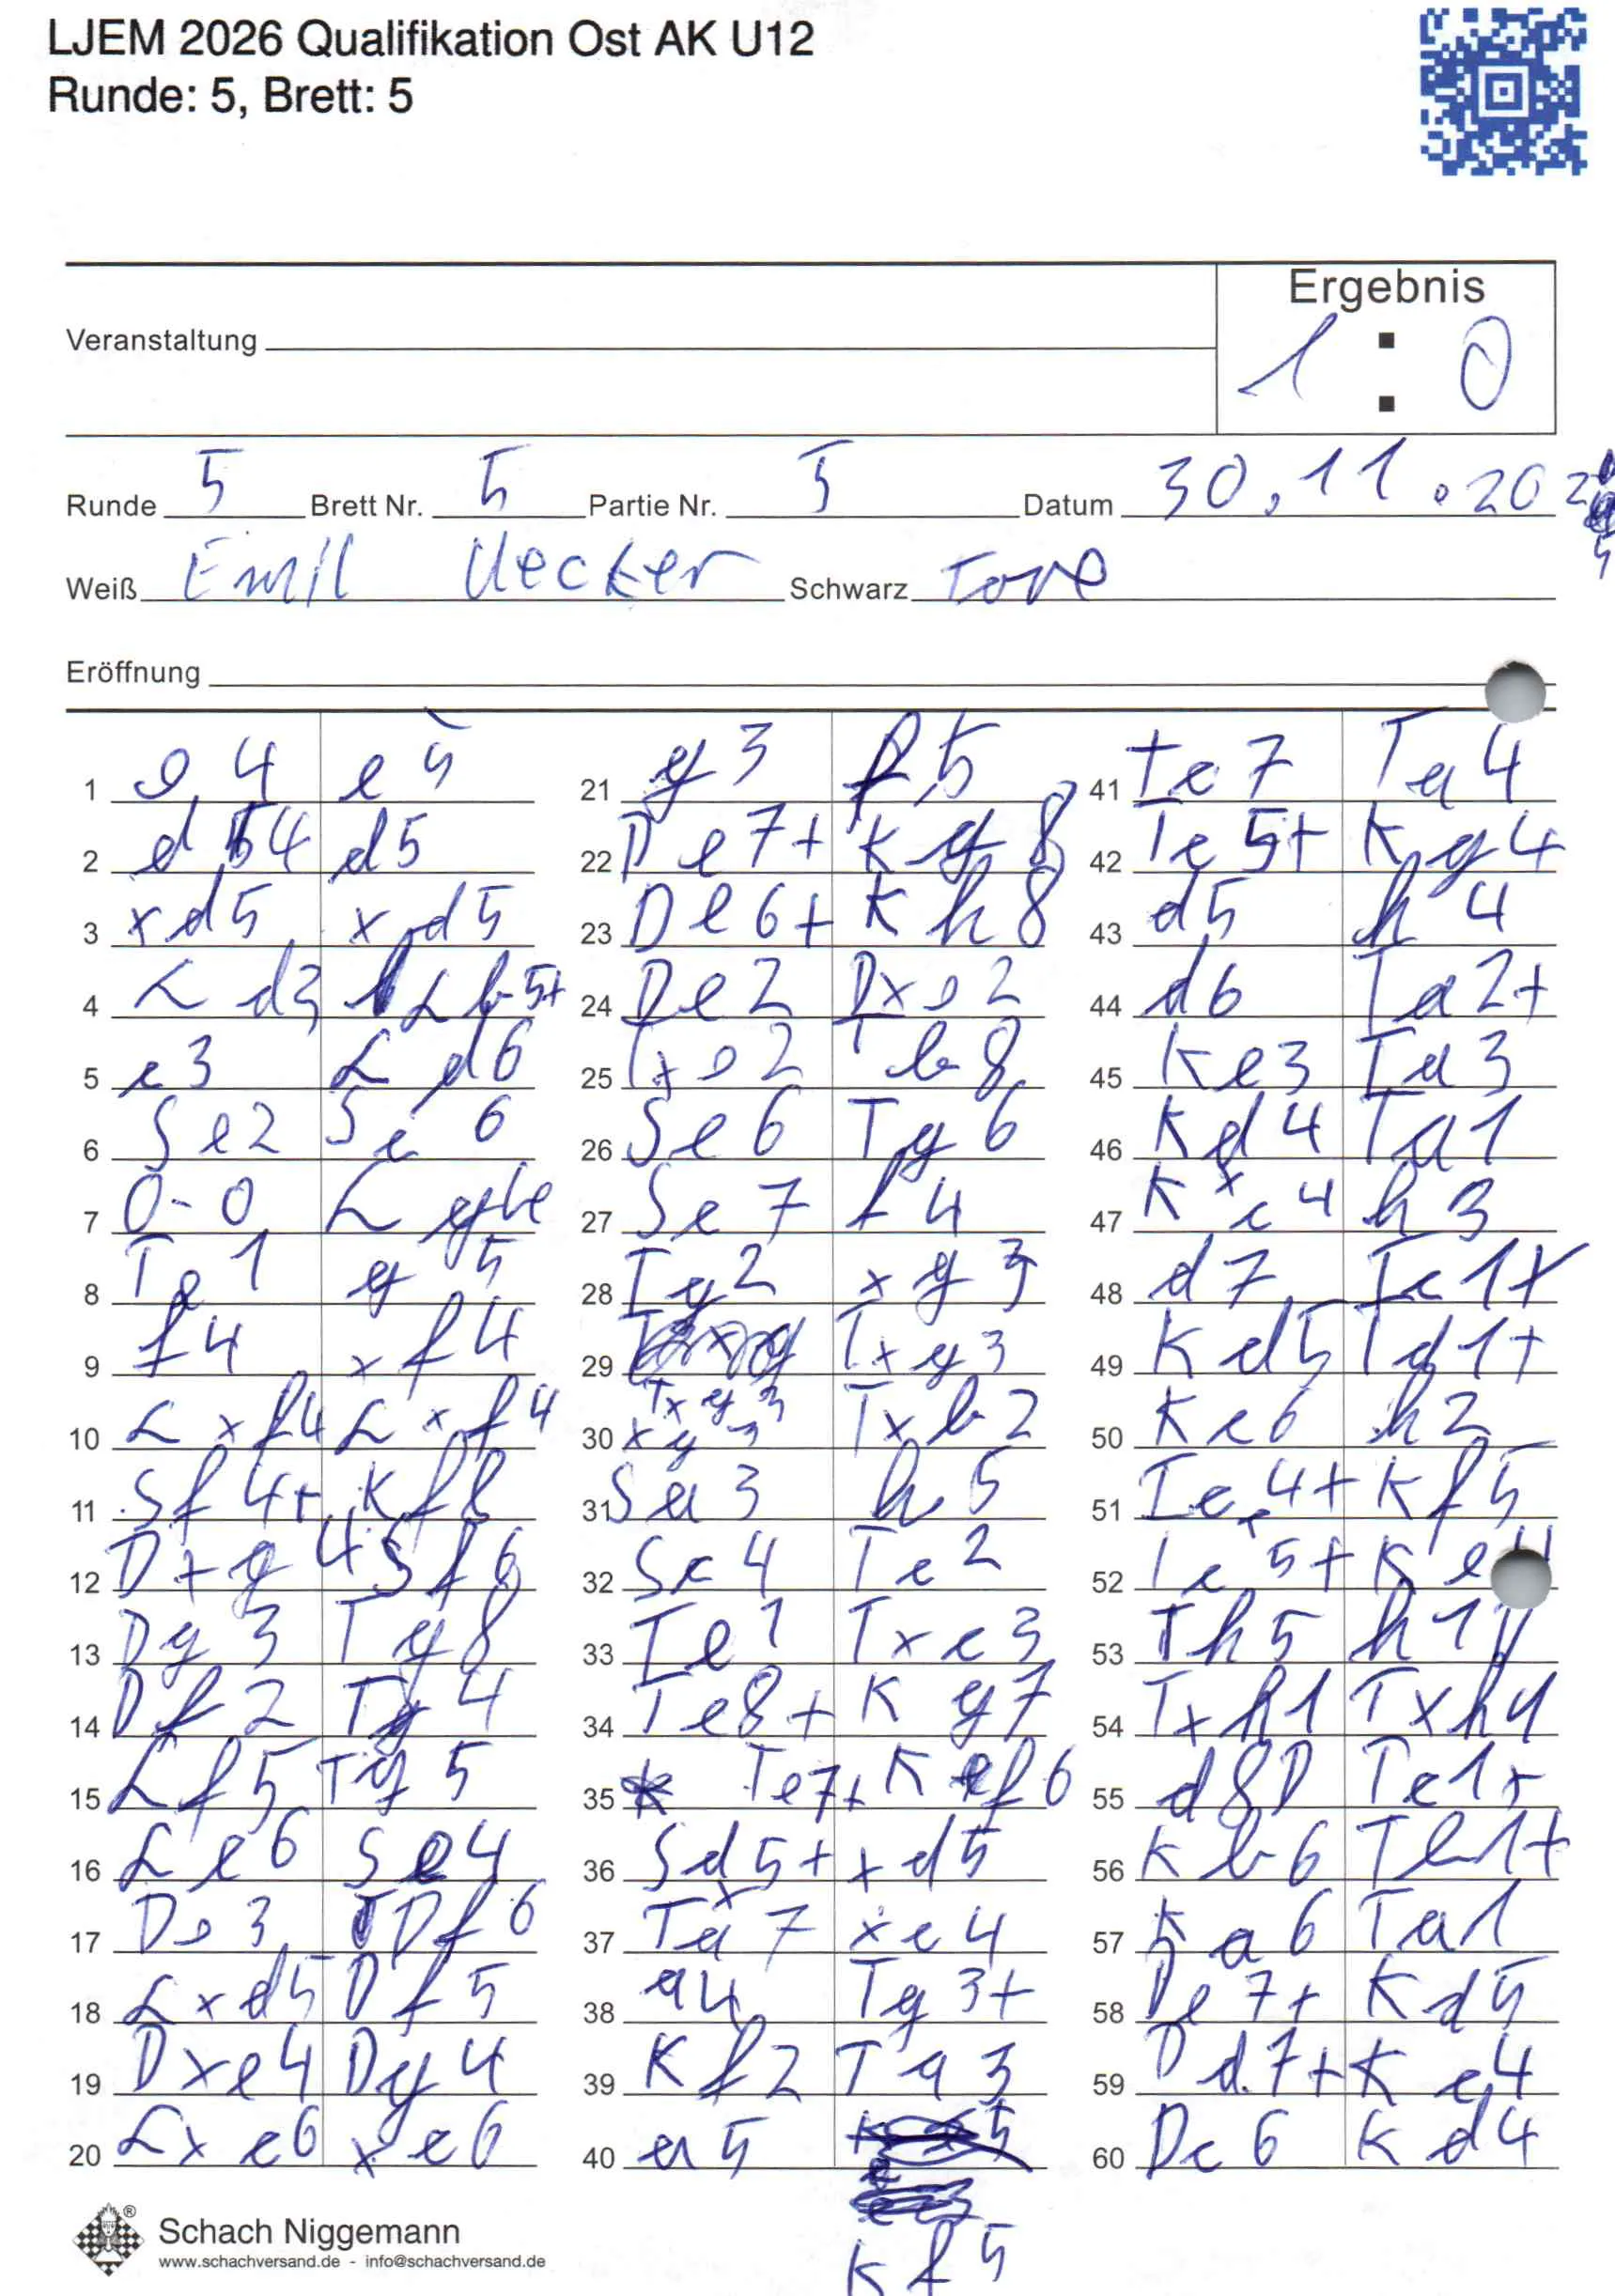 LJEM 2026 Qualifikation Ost AK U12
Runde: 5, Brett: 5
Ergebnis
1 : 0
Veranstaltung
Runde 5 Brett Nr. 5 Partie Nr. 5 Datum 30.11.202
Weiß Emil Uecker Schwarz Tore
Eröffnung
1 e4 e5
2 d4 d5
3 xd5 xd5
4 Ld3 Lb5+
5 c3 Ld6
6 Se2 Sc6
7 0-0 Lg4
8 Te1 g5
9 f4 xf4
10 Lxf4 Lxf4
11 Sf4+ Kf8
12 Dxg4 Sf6
13 Dg3 Tg8
14 Df2 Tg4
15 Lf5 Tg5
16 Le6 Se4
17 De3 Df6
18 Lxd5 Df5
19 Dxe4 Dg4
20 Lxc6 xc6
21 g3 f5
22 De7+ Kg8
23 De6+ Kh8
24 De2 Dxe2
25 Txe2 Tb8
26 Se6 Tg6
27 Sc7 f4
28 Tg2 xg3
29 Txg3 Txg3
30 xg3 Txb2
31 Sa3 h5
32 Sc4 Tc2
33 Te1 Txc3
34 Te8+ Kg7
35 Te7+ Kf6
36 Sd5+ xd5
37 Txa7 xc4
38 a4 Tg3+
39 Kf2 Ta3
40 a5 Kf5
41 Tc7 Ta4
42 Tc5+ Kg4
43 d5 h4
44 d6 Ta2+
45 Ke3 Ta3
46 Kd4 Ta1
47 Kxc4 h3
48 d7 Tc1+
49 Kd5 Td1+
50 Kc6 h2
51 Tc4+ Kf5
52 Tc5+ Ke4
53 Th5 h1
54 Txh1 Txh1
55 d8D Tc1+
56 Kb6 Tb1+
57 Ka6 Ta1
58 De7+ Kd5
59 Dd7+ Ke4
60 Dc6 Kd4
Schach Niggemann
www.schachversand.de - info@schachversand.de